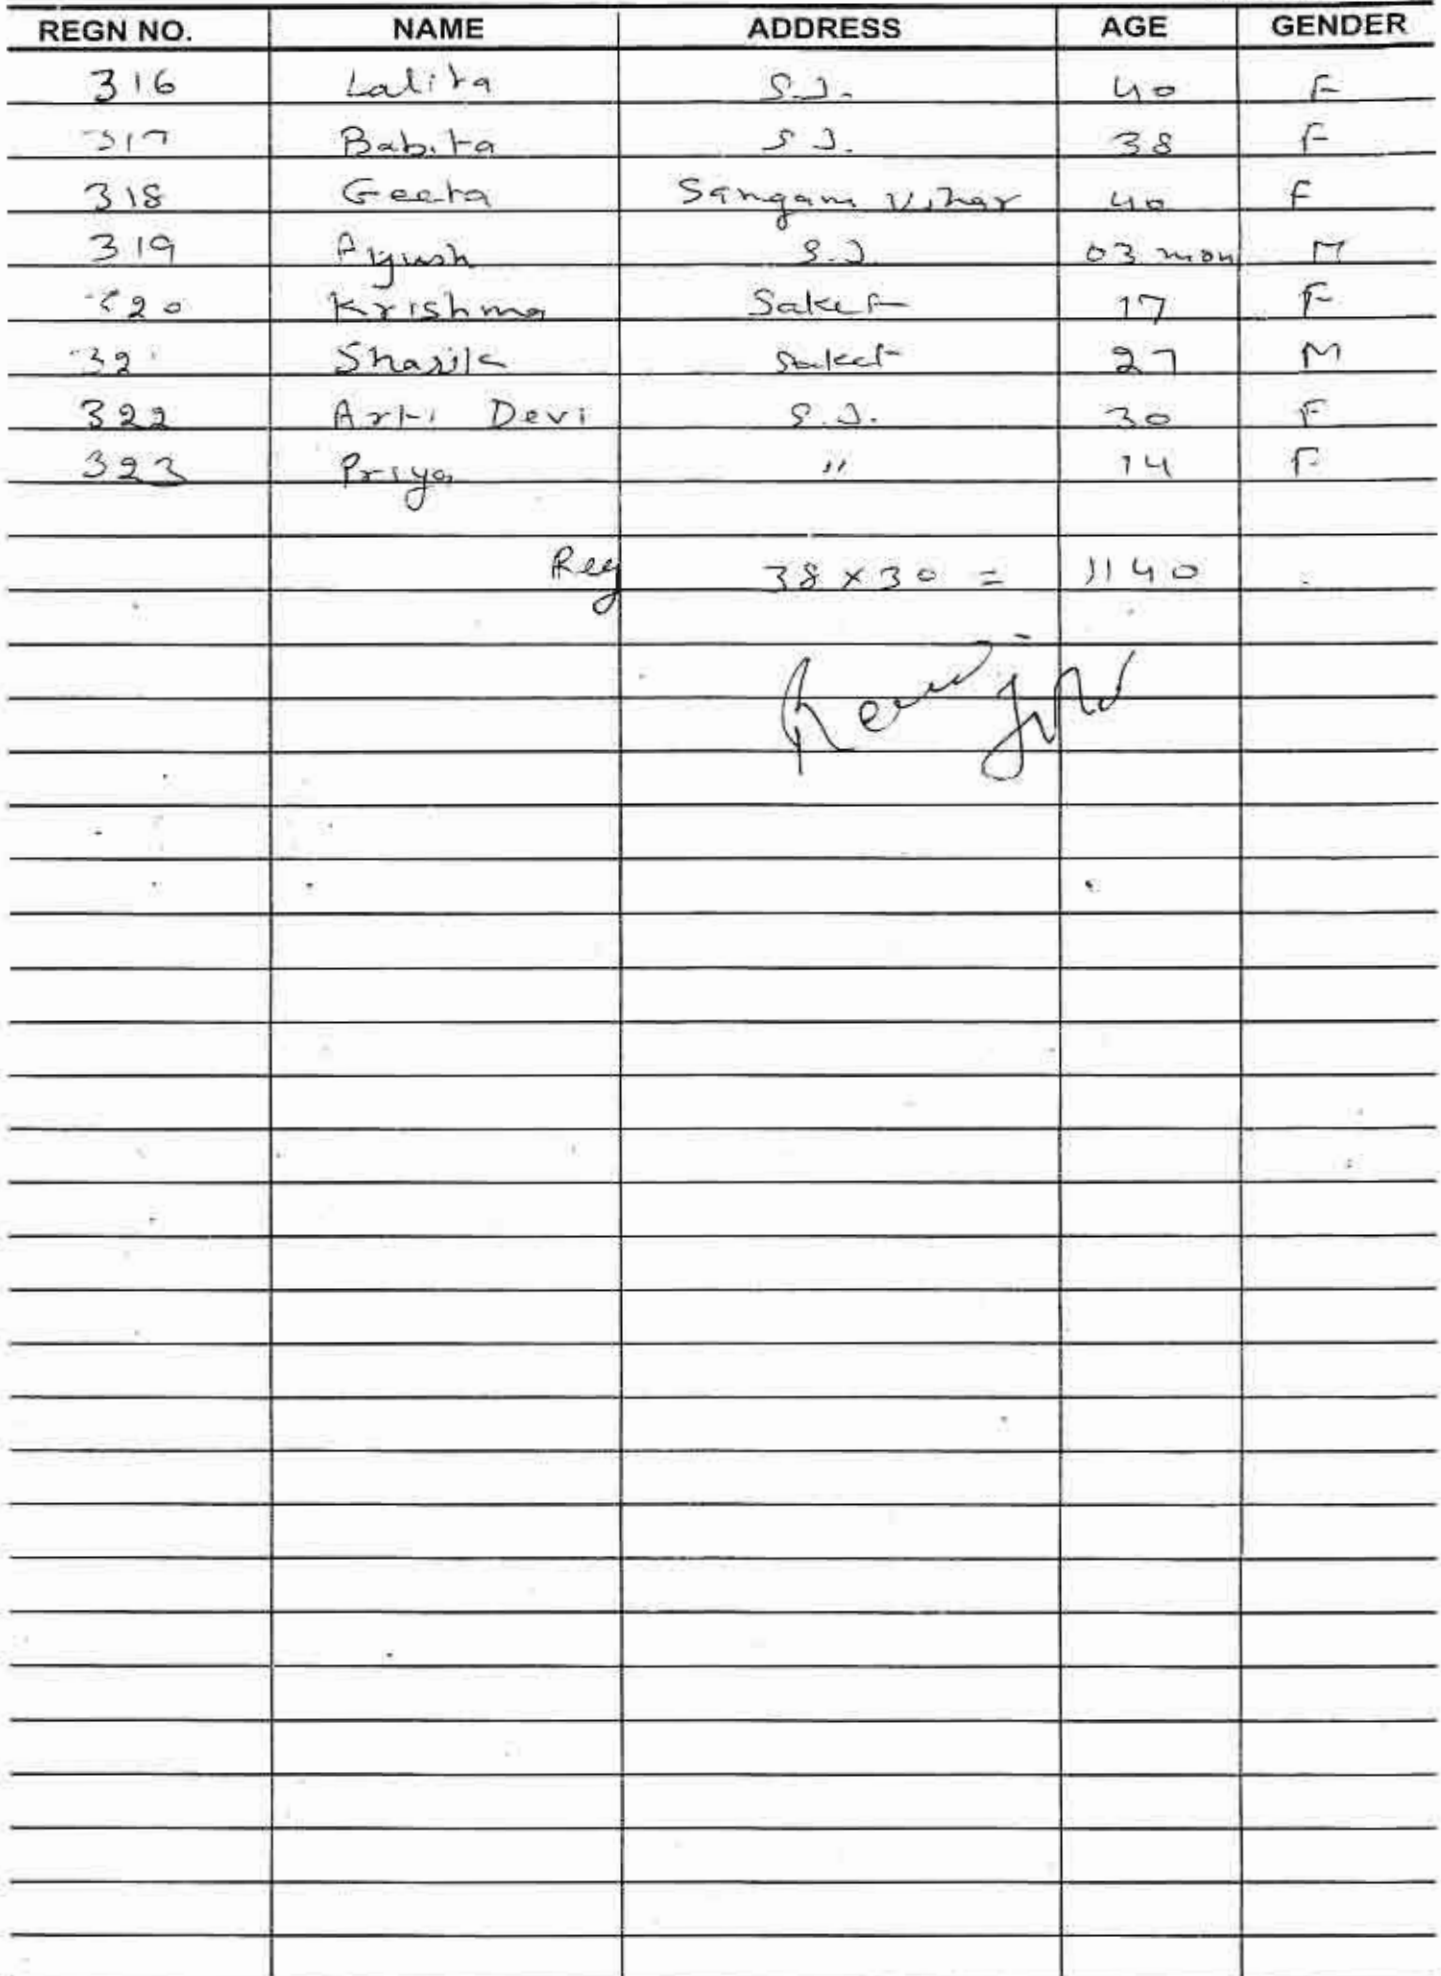 REGN NO. NAME ADDRESS AGE GENDER
316 Lalita S.J. 40 F
317 Babita S.J. 38 F
318 Geeta Sangam Vihar 40 F
319 Ayush S.J. 03 mon M
320 Krishma Saket 17 F
32 Sharik Saket 27 M
322 Arti Devi S.J. 30 F
323 Priya " 14 F
Reg 38 x 30 = 1140